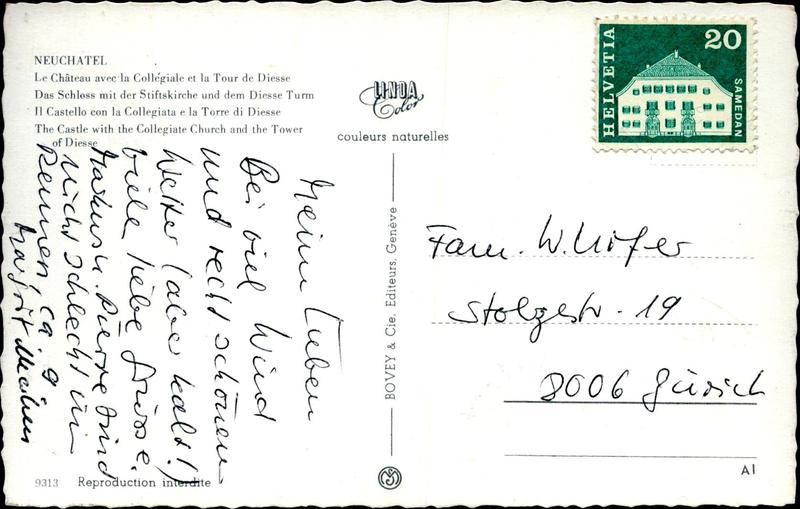 NEUCHATEL
Le Château avec la Collégiale et la Tour de Diesse
Das Schloss mit der Stiftskirche und dem Diesse Turm
Il Castello con la Collegiata e la Torre di Diesse
The Castle with the Collegiate Church and the Tower
of Diesse
LINDA
Color
couleurs naturelles
HELVETIA
20
SAMEDAN
Meine Lieben
Bei viel Wind
und recht schönem
Wetter (aber kalt!)
viele liebe Grüsse.
Markus u. Pierre sind
nicht schlecht im
Rennen ca. 9
Margrit
BOVEY & Cie, Editeurs, Genève
Fam. W. Hofer
Stolzestr. 19
8006 Zürich
9313 Reproduction interdite
A1